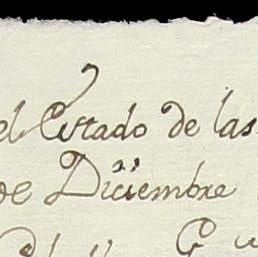 el Estado de las
de Diciiembre